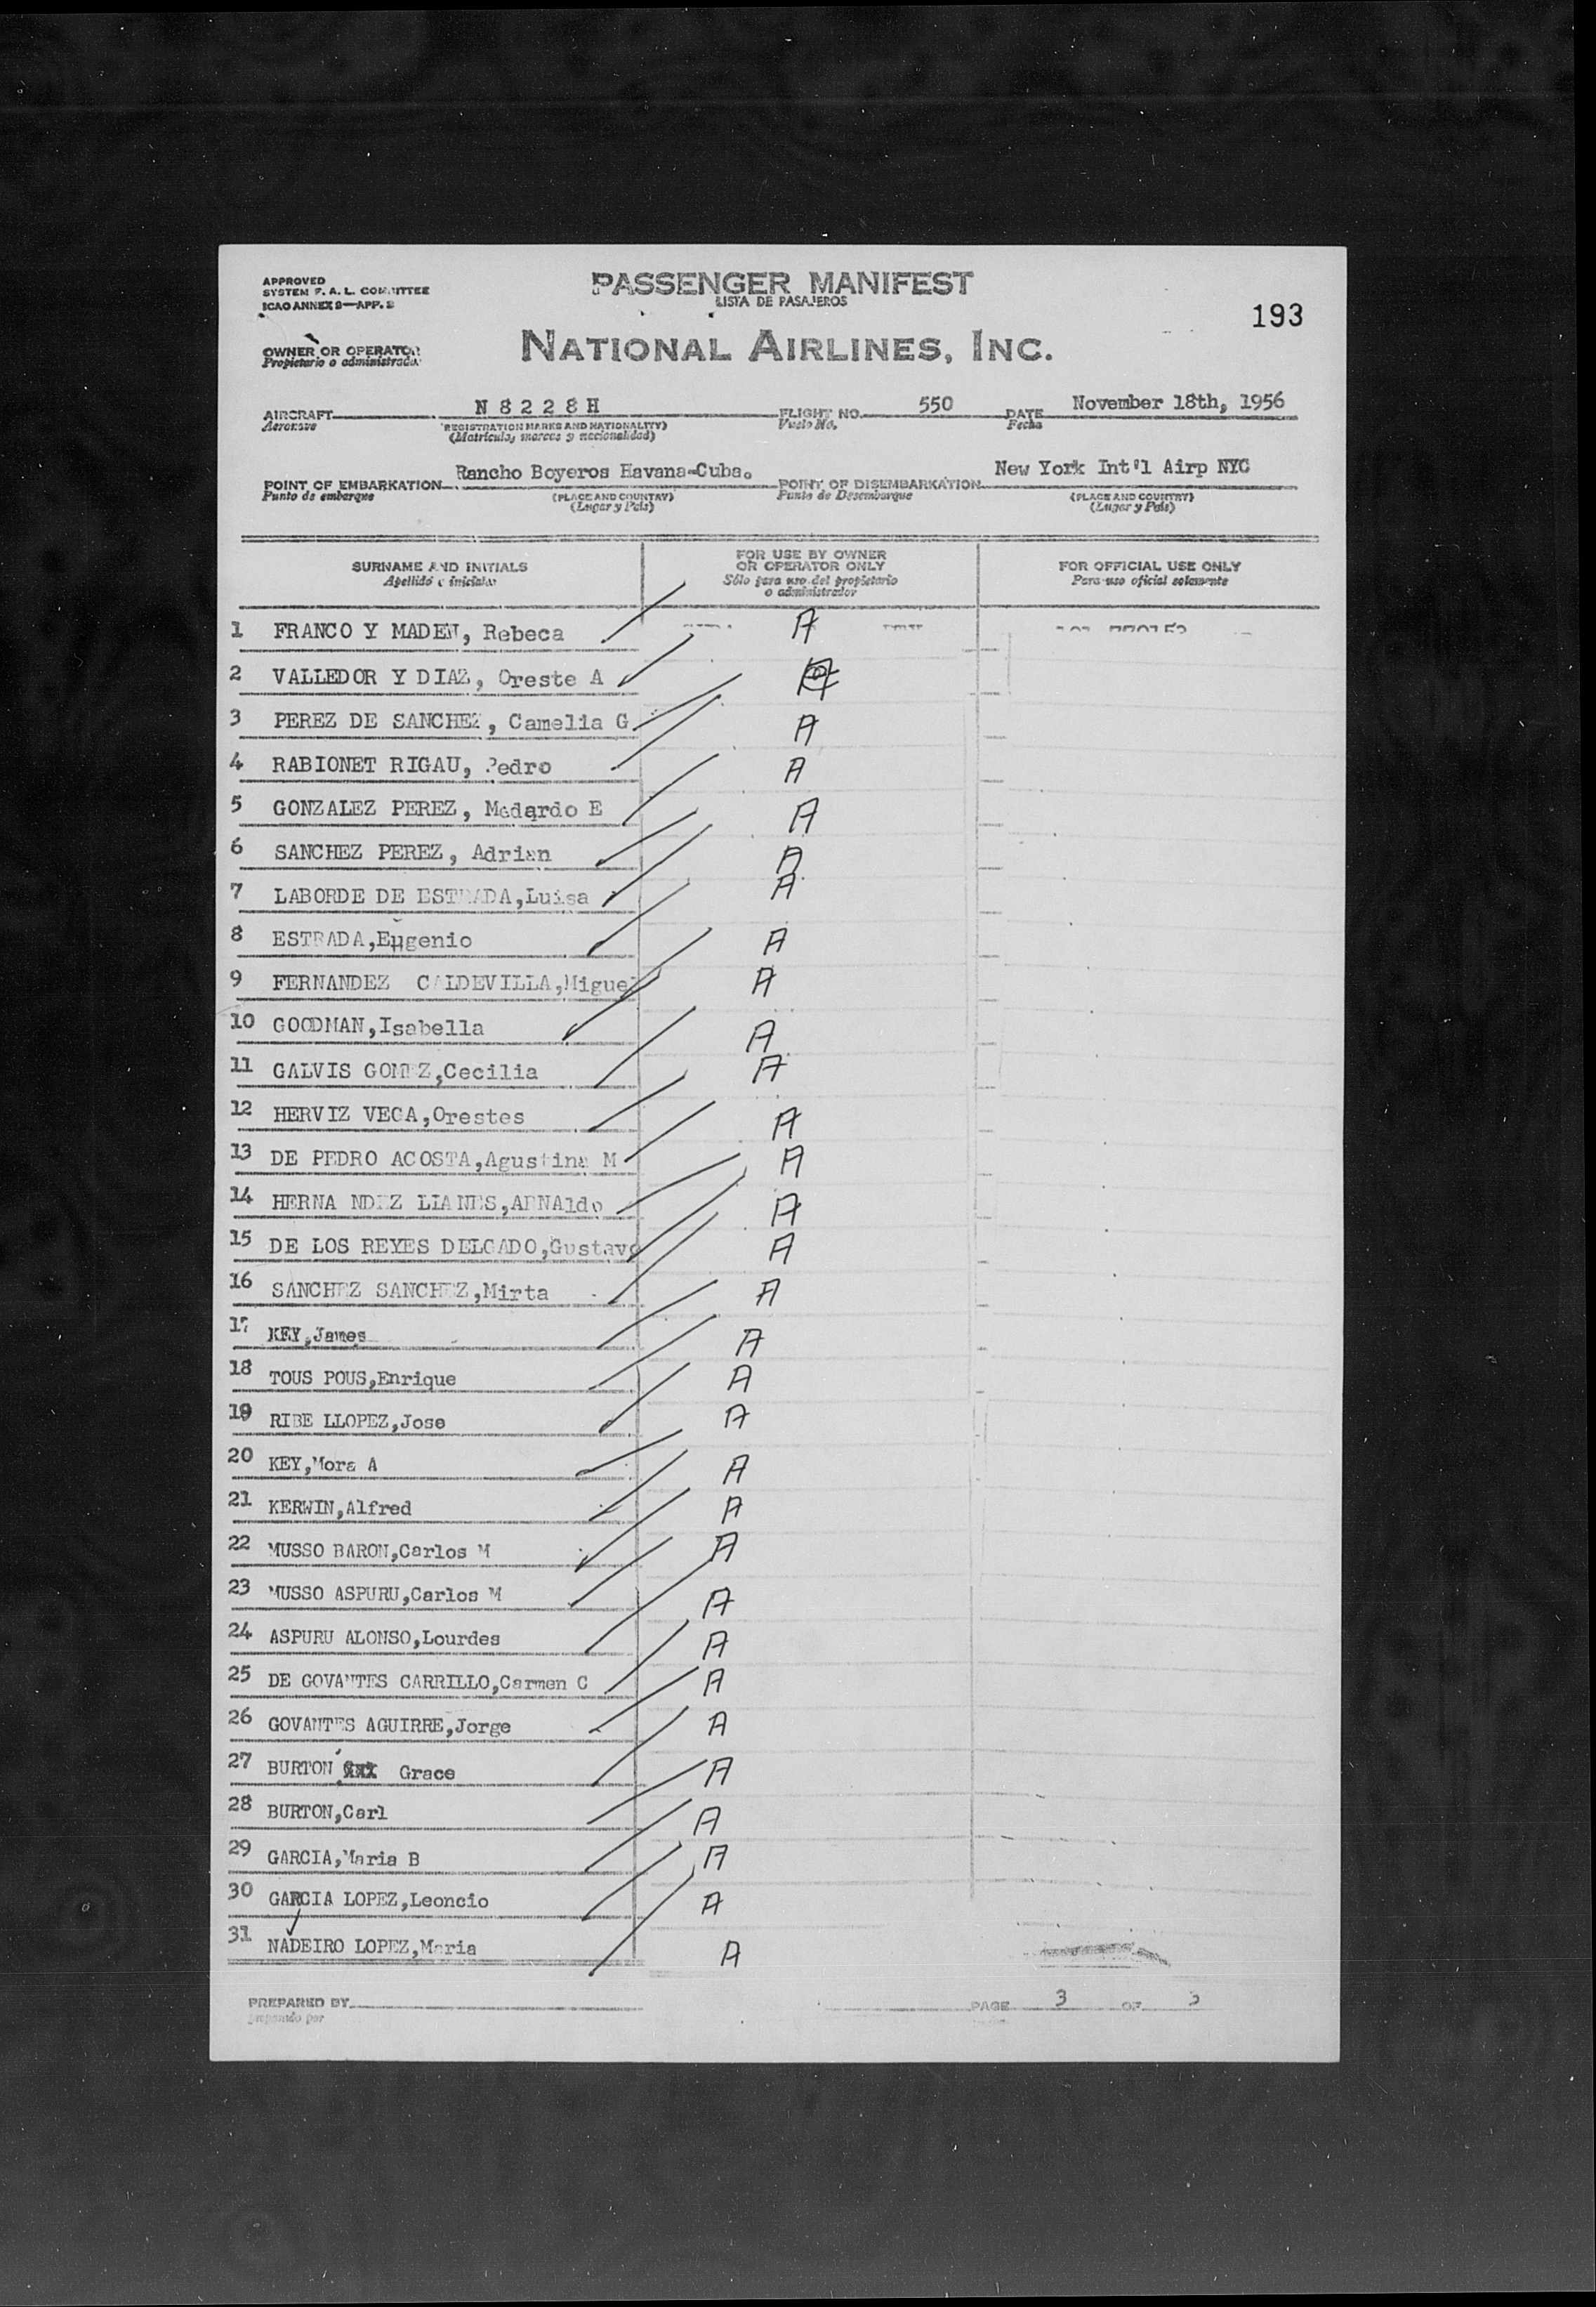 APPROVED
SYSTEM F. A. L. COMMITTEE
ICAO ANNEX 9—APP. 2
PASSENGER MANIFEST
LISTA DE PASAJEROS
193
OWNER OR OPERATOR
Propietario o administrador
NATIONAL AIRLINES, INC.
AIRCRAFT N 8 2 2 8 H FLIGHT NO. 550 DATE November 18th, 1956
Aeronave (REGISTRATION MARKS AND NATIONALITY) Vuelo No. Fecha
(Matricula, marcas y nacionalidad)
POINT OF EMBARKATION Rancho Boyeros Havana-Cuba. POINT OF DISEMBARKATION New York Int'l Airp NYC
Punto de embarque (PLACE AND COUNTRY) Punto de Desembarque (PLACE AND COUNTRY)
(Lugar y País) (Lugar y País)
SURNAME AND INITIALS FOR USE BY OWNER OR OPERATOR ONLY FOR OFFICIAL USE ONLY
Apellido e iniciales Sólo para uso del propietario o administrador Para uso oficial solamente
1 FRANCO Y MADEN, Rebeca A
2 VALLEDOR Y DIAZ, Oreste A
3 PEREZ DE SANCHEZ, Camelia G. A
4 RABIONET RIGAU, Pedro A
5 GONZALEZ PEREZ, Medardo E A
6 SANCHEZ PEREZ, Adrian A
7 LABORDE DE ESTRADA,Luisa A
8 ESTRADA,Eugenio A
9 FERNANDEZ CALDEVILLA,Miguel A
10 GOODMAN,Isabella A
11 GALVIS GOMEZ,Cecilia A
12 HERVIZ VEGA,Orestes A
13 DE PEDRO ACOSTA,Agustina M A
14 HERNA NDEZ LLANES,ARNAldo A
15 DE LOS REYES DELGADO,Gustavo A
16 SANCHEZ SANCHEZ,Mirta A
17 KEY,James A
18 TOUS POUS,Enrique A
19 RIBE LLOPEZ,Jose A
20 KEY,Mora A A
21 KERWIN,Alfred A
22 MUSSO BARON,Carlos M A
23 MUSSO ASPURU,Carlos M A
24 ASPURU ALONSO,Lourdes A
25 DE GOVANTES CARRILLO,Carmen C A
26 GOVANTES AGUIRRE,Jorge A
27 BURTON Grace A
28 BURTON,Carl A
29 GARCIA,Maria B A
30 GARCIA LOPEZ,Leoncio A
31 NADEIRO LOPEZ,Maria A
PREPARED BY PAGE 3 OF 3
preparado por